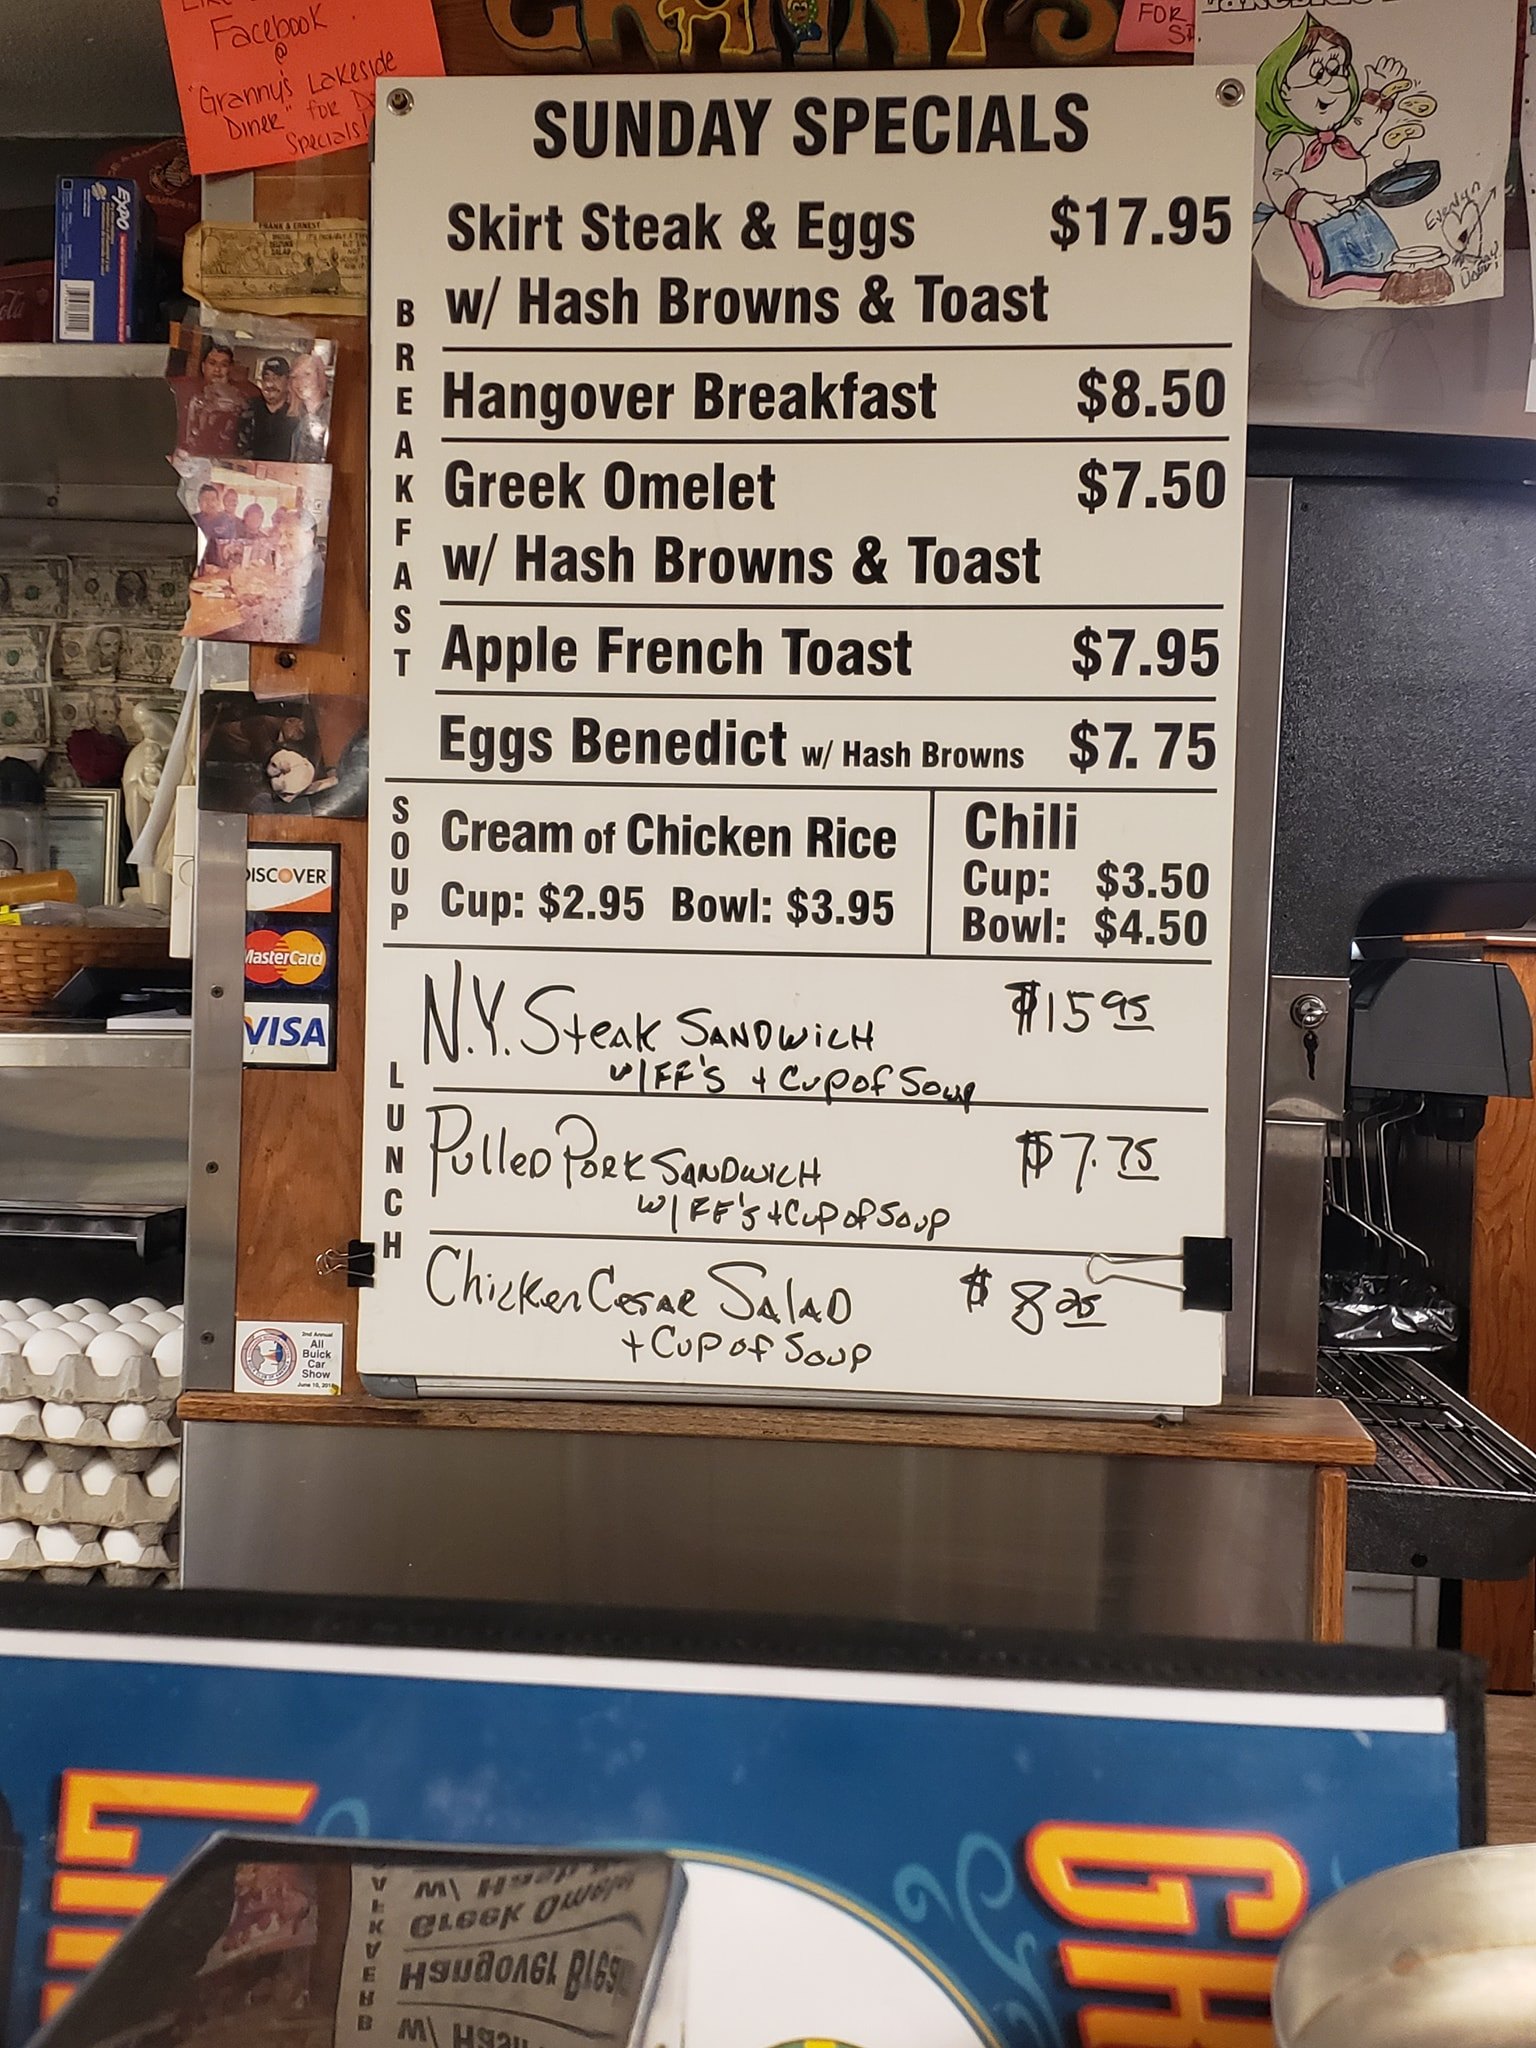 Facebook
@
"Granny's Lakeside
Diner" for
Specials!
GRANNY'S
FOR
EXPO
SEMPER
FRANK & ERNEST
Evelyn
SUNDAY SPECIALS
BREAKFAST
Skirt Steak & Eggs $17.95
w/ Hash Browns & Toast
Hangover Breakfast $8.50
Greek Omelet $7.50
w/ Hash Browns & Toast
Apple French Toast $7.95
Eggs Benedict w/ Hash Browns $7.75
SOUP
Cream of Chicken Rice
Cup: $2.95 Bowl: $3.95
Chili
Cup: $3.50
Bowl: $4.50
LUNCH
N.Y. Steak SANDWICH $15 95
w/FF's + Cup of Soup
Pulled Pork SANDWICH $7.75
w/FF's + Cup of Soup
Chicken Cesar Salad $8 25
+ Cup of Soup
DISCOVER
MasterCard
VISA
2nd Annual
All
Buick
Car
Show